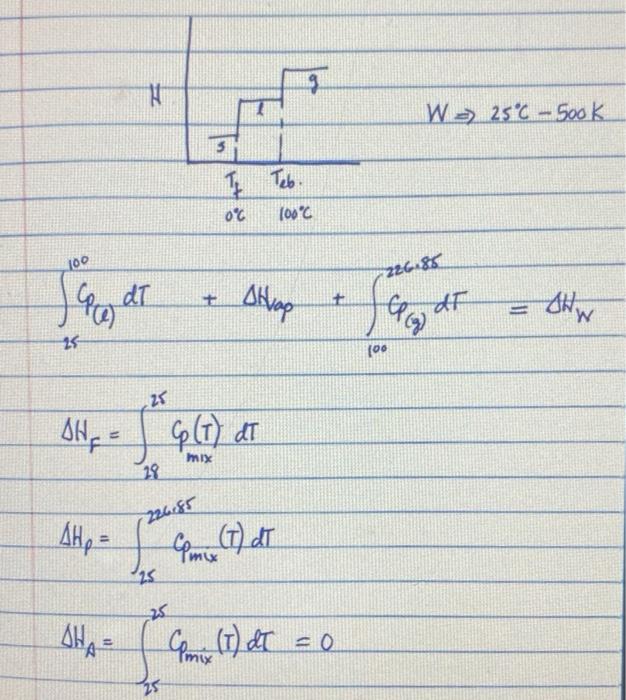 H
g
l
s
W ⇒ 25°C - 500K
T_f T_eb.
0°C 100°C
∫_25^100 Cp_(l) dT + ΔHvap + ∫_100^226.85 Cp_(g) dT = ΔH_W
ΔH_F = ∫_28^25 Cp_mix(T) dT
ΔH_P = ∫_25^226.85 Cp_mix(T) dT
ΔH_A = ∫_25^25 Cp_mix(T) dT = 0